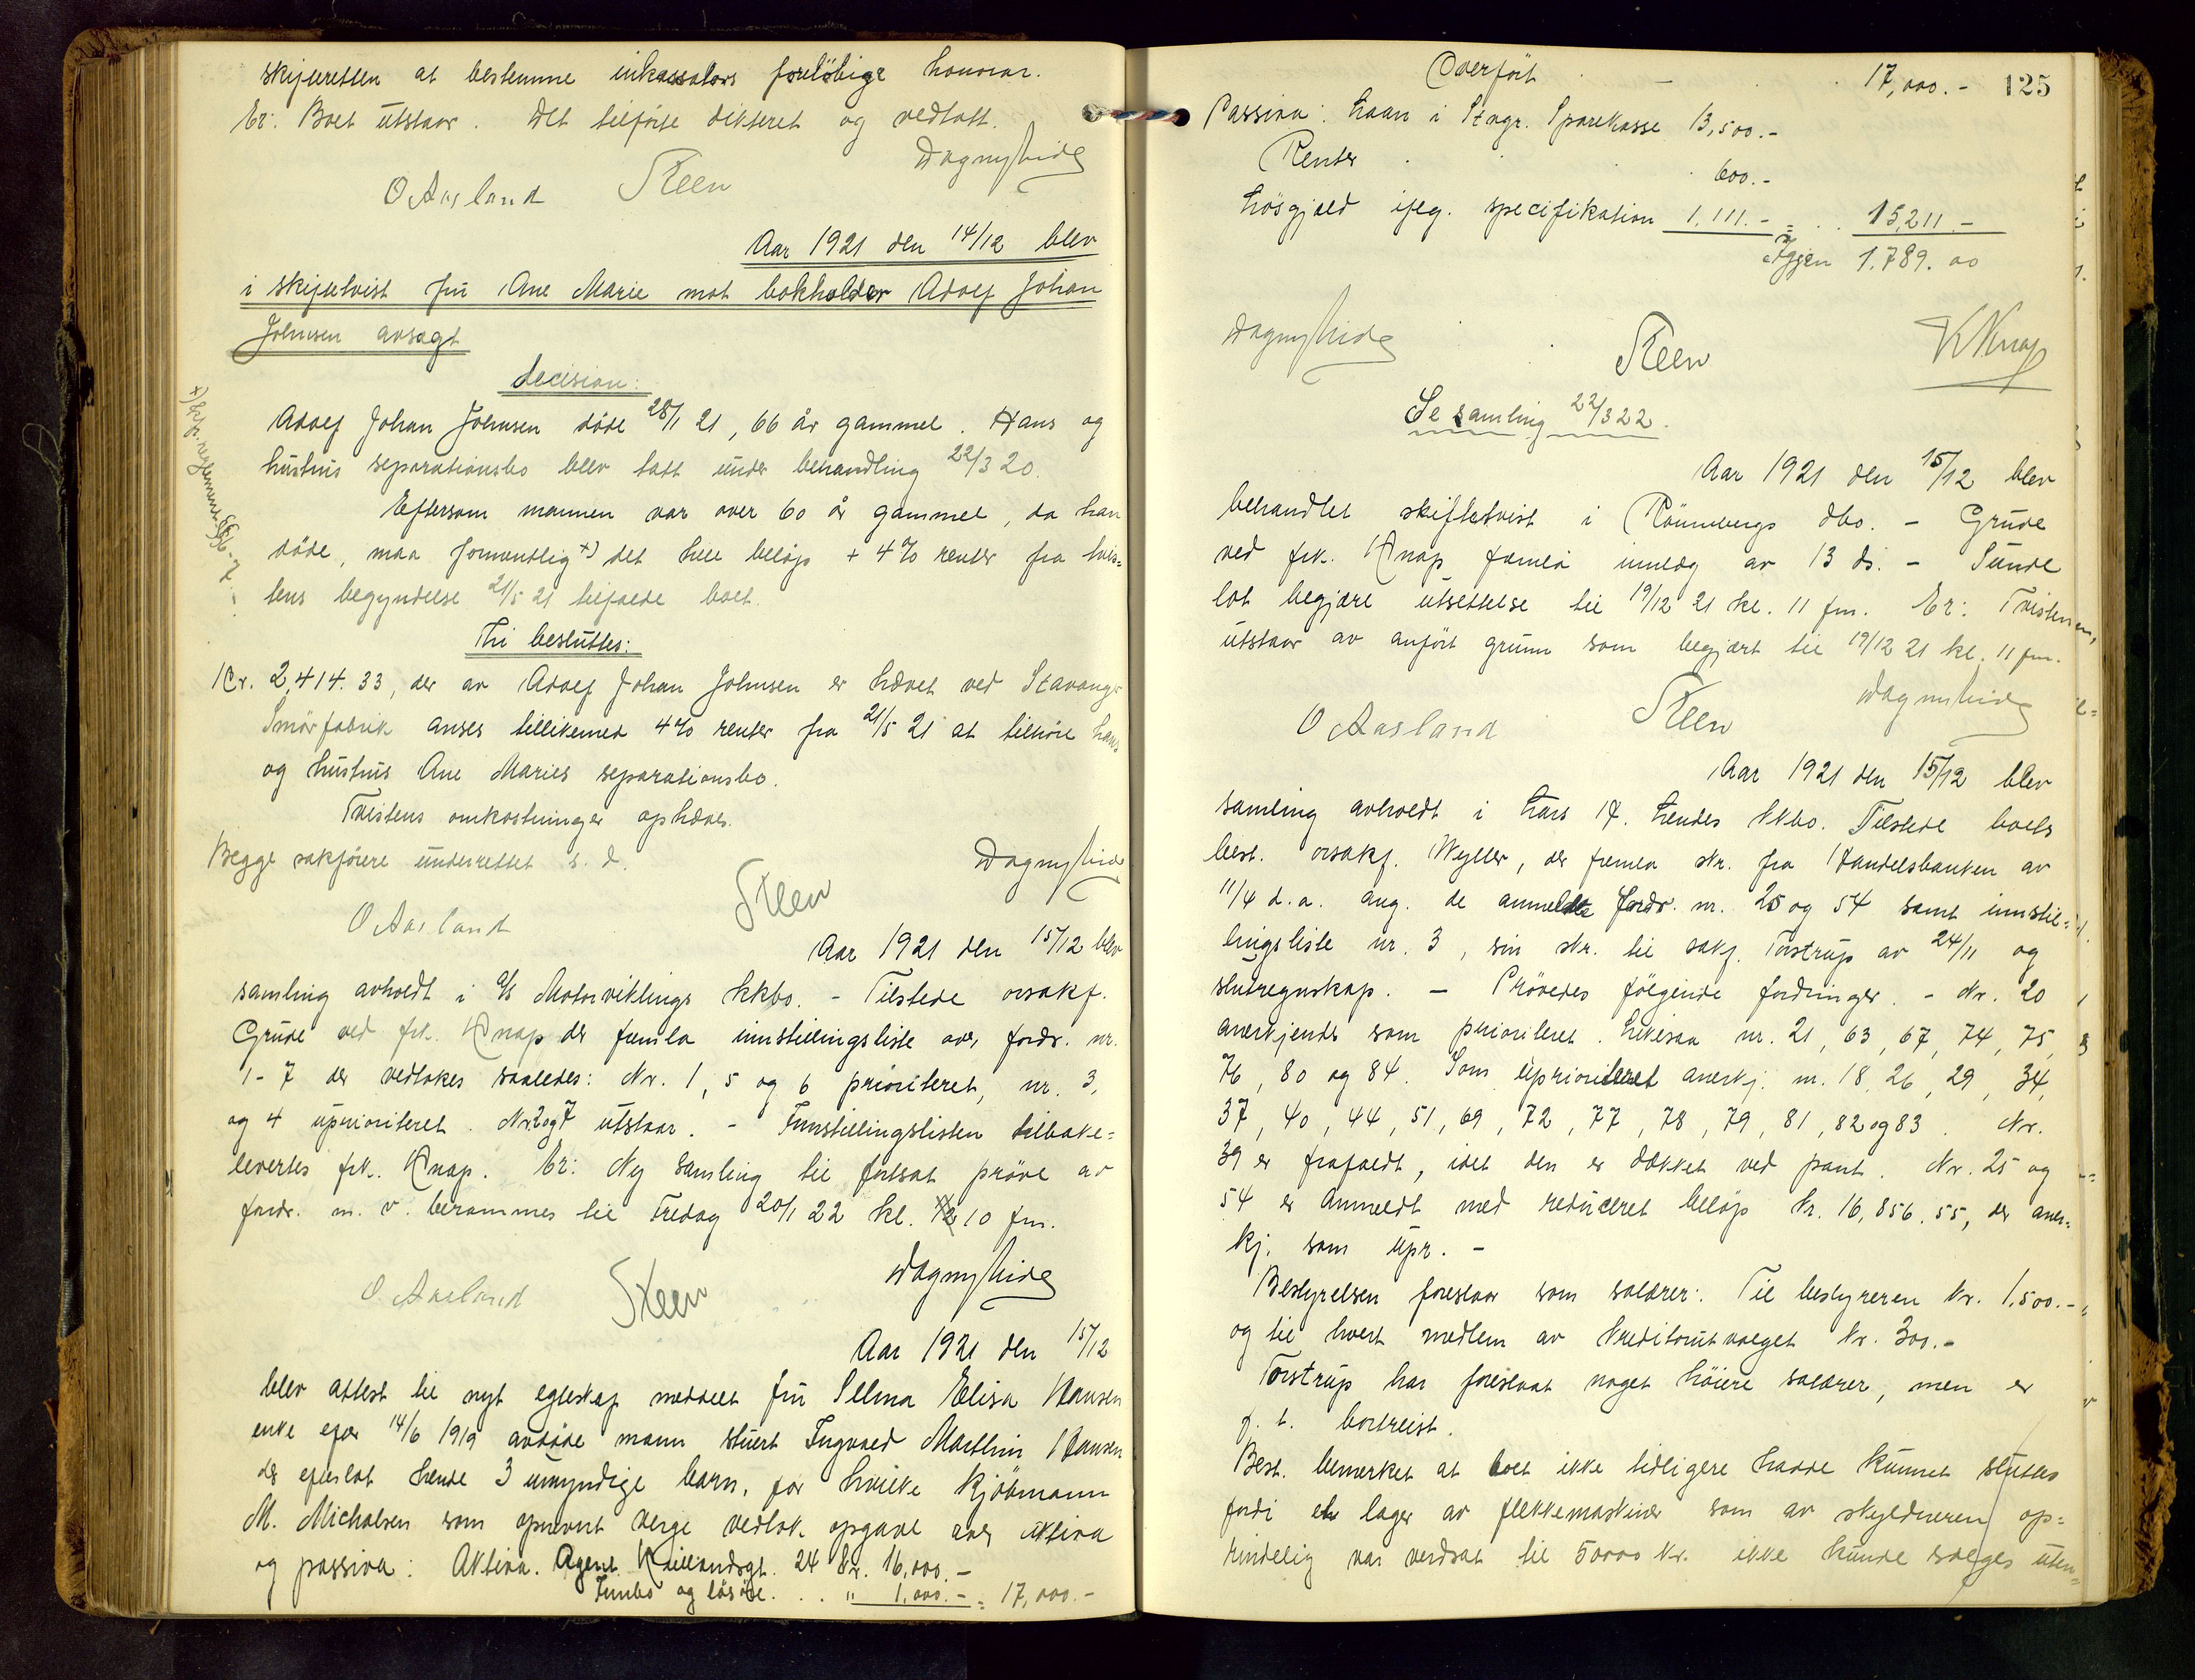 skifteretten at bestemme inkassators foreløbige honorar.
Er: Boet utstaar. Det tilførte dikteret og vedtatt.
O Aasland Steen Dagny Lide
Aar 1921 den 14/12 blev
i skiftetvist fru Ane Marie mot bokholder Adolf Johan
Johnsen avsagt
decision:
Adolf Johan Johnsen døde 28/1 21, 66 år gammel. Hans og
hustrus separationsbo blev tatt under behandling 22/3 20.
Eftersom mannen var over 60 år gammel, da han
døde, maa formentlig x) det hele beløp + 4% renter fra tvis-
tens begyndelse 21/5 21 tilfalde boet.
Thi besluttes:
Kr. 2,414.33, der av Adolf Johan Johnsen er hævet ved Stavanger
Smørfabrik anses tillikemed 4% renter fra 21/5 21 at tilhøre hans
og hustrus Ane Maries separationsbo.
Tvistens omkostninger ophæves.
Begge sakførere underrettet s. d.
O Aasland Steen Dagny Lide
Aar 1921 den 15/12 blev
samling avholdt i A/S Motorviklings kkbo. - Tilstede orsakf.
Grude ved frk. Knap der fremla innstillingsliste over fordr. nr.
1-7 der vedtokes saaledes: Nr. 1, 5 og 6 prioriteret, nr. 3,
og 4 uprioriteret. Nr. 2 og 7 utstaar. - Innstillingslisten tilbake-
levertes frk. Knap. Er: Ny samling til fortsat prøve av
fordr. m. v. berammes til Fredag 20/1 22 kl. 10 fm.
O. Aasland Steen Dagny Lide
Aar 1921 den 15/12
blev attest til nyt egteskap meddelt fru Selma Elisa Hansen
enke efter 14/6 1919 avdøde mann stuert Ingvald Marthin Hansen
der efterlot hende 3 umyndige barn, for hvilke kjøbmann
M. Micholsen som opnevnt verge vedtok opgave over aktiva
og passiva: Aktiva. Kiellandsgt. 24 Kr. 16,000.-
Innbo og løsøre. . . " 1,000.- = 17,000.-
125
Overført 17,000.-
Passiva: Laan i Stvgr. Sparekasse 13,500.-
Renter 600.-
Løsgjæld ifølg. specifikation 1,111.- = . . 15,211.-
Igjen 1,789.00
Dagny Lide Steen K Knap
Se samling 22/3 22.
Aar 1921 den 15/12 blev
behandlet skiftetvist i Rønnebergs dbo. - Grude
ved frk. Knap fremla innlæg av 13 ds. - Sunde
lot begjære utsettelse til 19/12 21 kl. 11 fm. Er: Tvisten
utstaar av anført grunn som begjært til 19/12 21 kl. 11 fm.
O Aasland Steen Dagny Lide
Aar 1921 den 15/12 blev
samling avholdt i Lars H. Lendes kkbo. Tilstede boets
best. orsakf. Wyller, der fremla skr. fra Handelsbanken av
11/4 d.a. ang. de anmeldte fordr. nr. 25 og 54 samt innstil-
lingsliste nr. 3, sin skr. til sakf. Torstrup av 24/11 og
slutregnskap. - Prøvedes følgende fordringer. - Nr. 20
anerkjendes som prioriteret. Likesaa nr. 21, 63, 67, 74, 75,
76, 80 og 84. Som uprioriteret anerkj. nr. 18, 26, 29, 34,
37, 40, 44, 51, 69, 72, 77, 78, 79, 81, 82 og 83. Nr.
39 er frafaldt, idet den er dækket ved pant. Nr. 25 og
54 er anmeldt med reduceret beløp kr. 16,856.55, der aner-
kj. som upr. -
Bestyrelsen foreslaar som salærer: Til bestyreren kr. 1,500.-
og til hvert medlem av kreditorutvalget kr. 300.-
Torstrup har foreslaat noget høiere salærer, men er
p. t. bortreist.
Best. bemerket at boet ikke tidligere hadde kunnet sluttes
fordi et lager av flekkemaskiner som av skyldneren op-
rindelig var verdsat til 50000 kr. ikke kunde sælges uten-